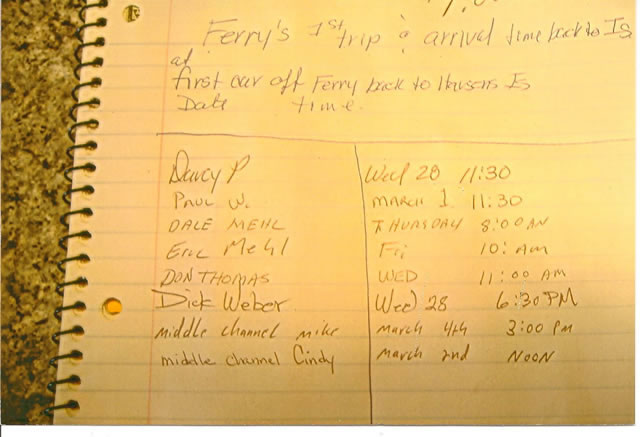 Ferry's 1st trip & arrival time back to Is
at
first car off Ferry back to Harsens Is
Date time.
Darcy P Wed 28 11:30
PAUL W. MARCH 1 11:30
DALE MEHL THURSDAY 8:00 AM
Eric Mehl Fri 10: AM
DON THOMAS WED 11:00 AM
Dick Weber Wed 28 6:30 PM
middle channel mike march 4th 3:00 Pm
middle channel Cindy march 2nd NOON